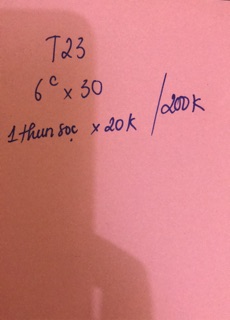 T23
6c x 30
1 thun sọc x 20k /200k